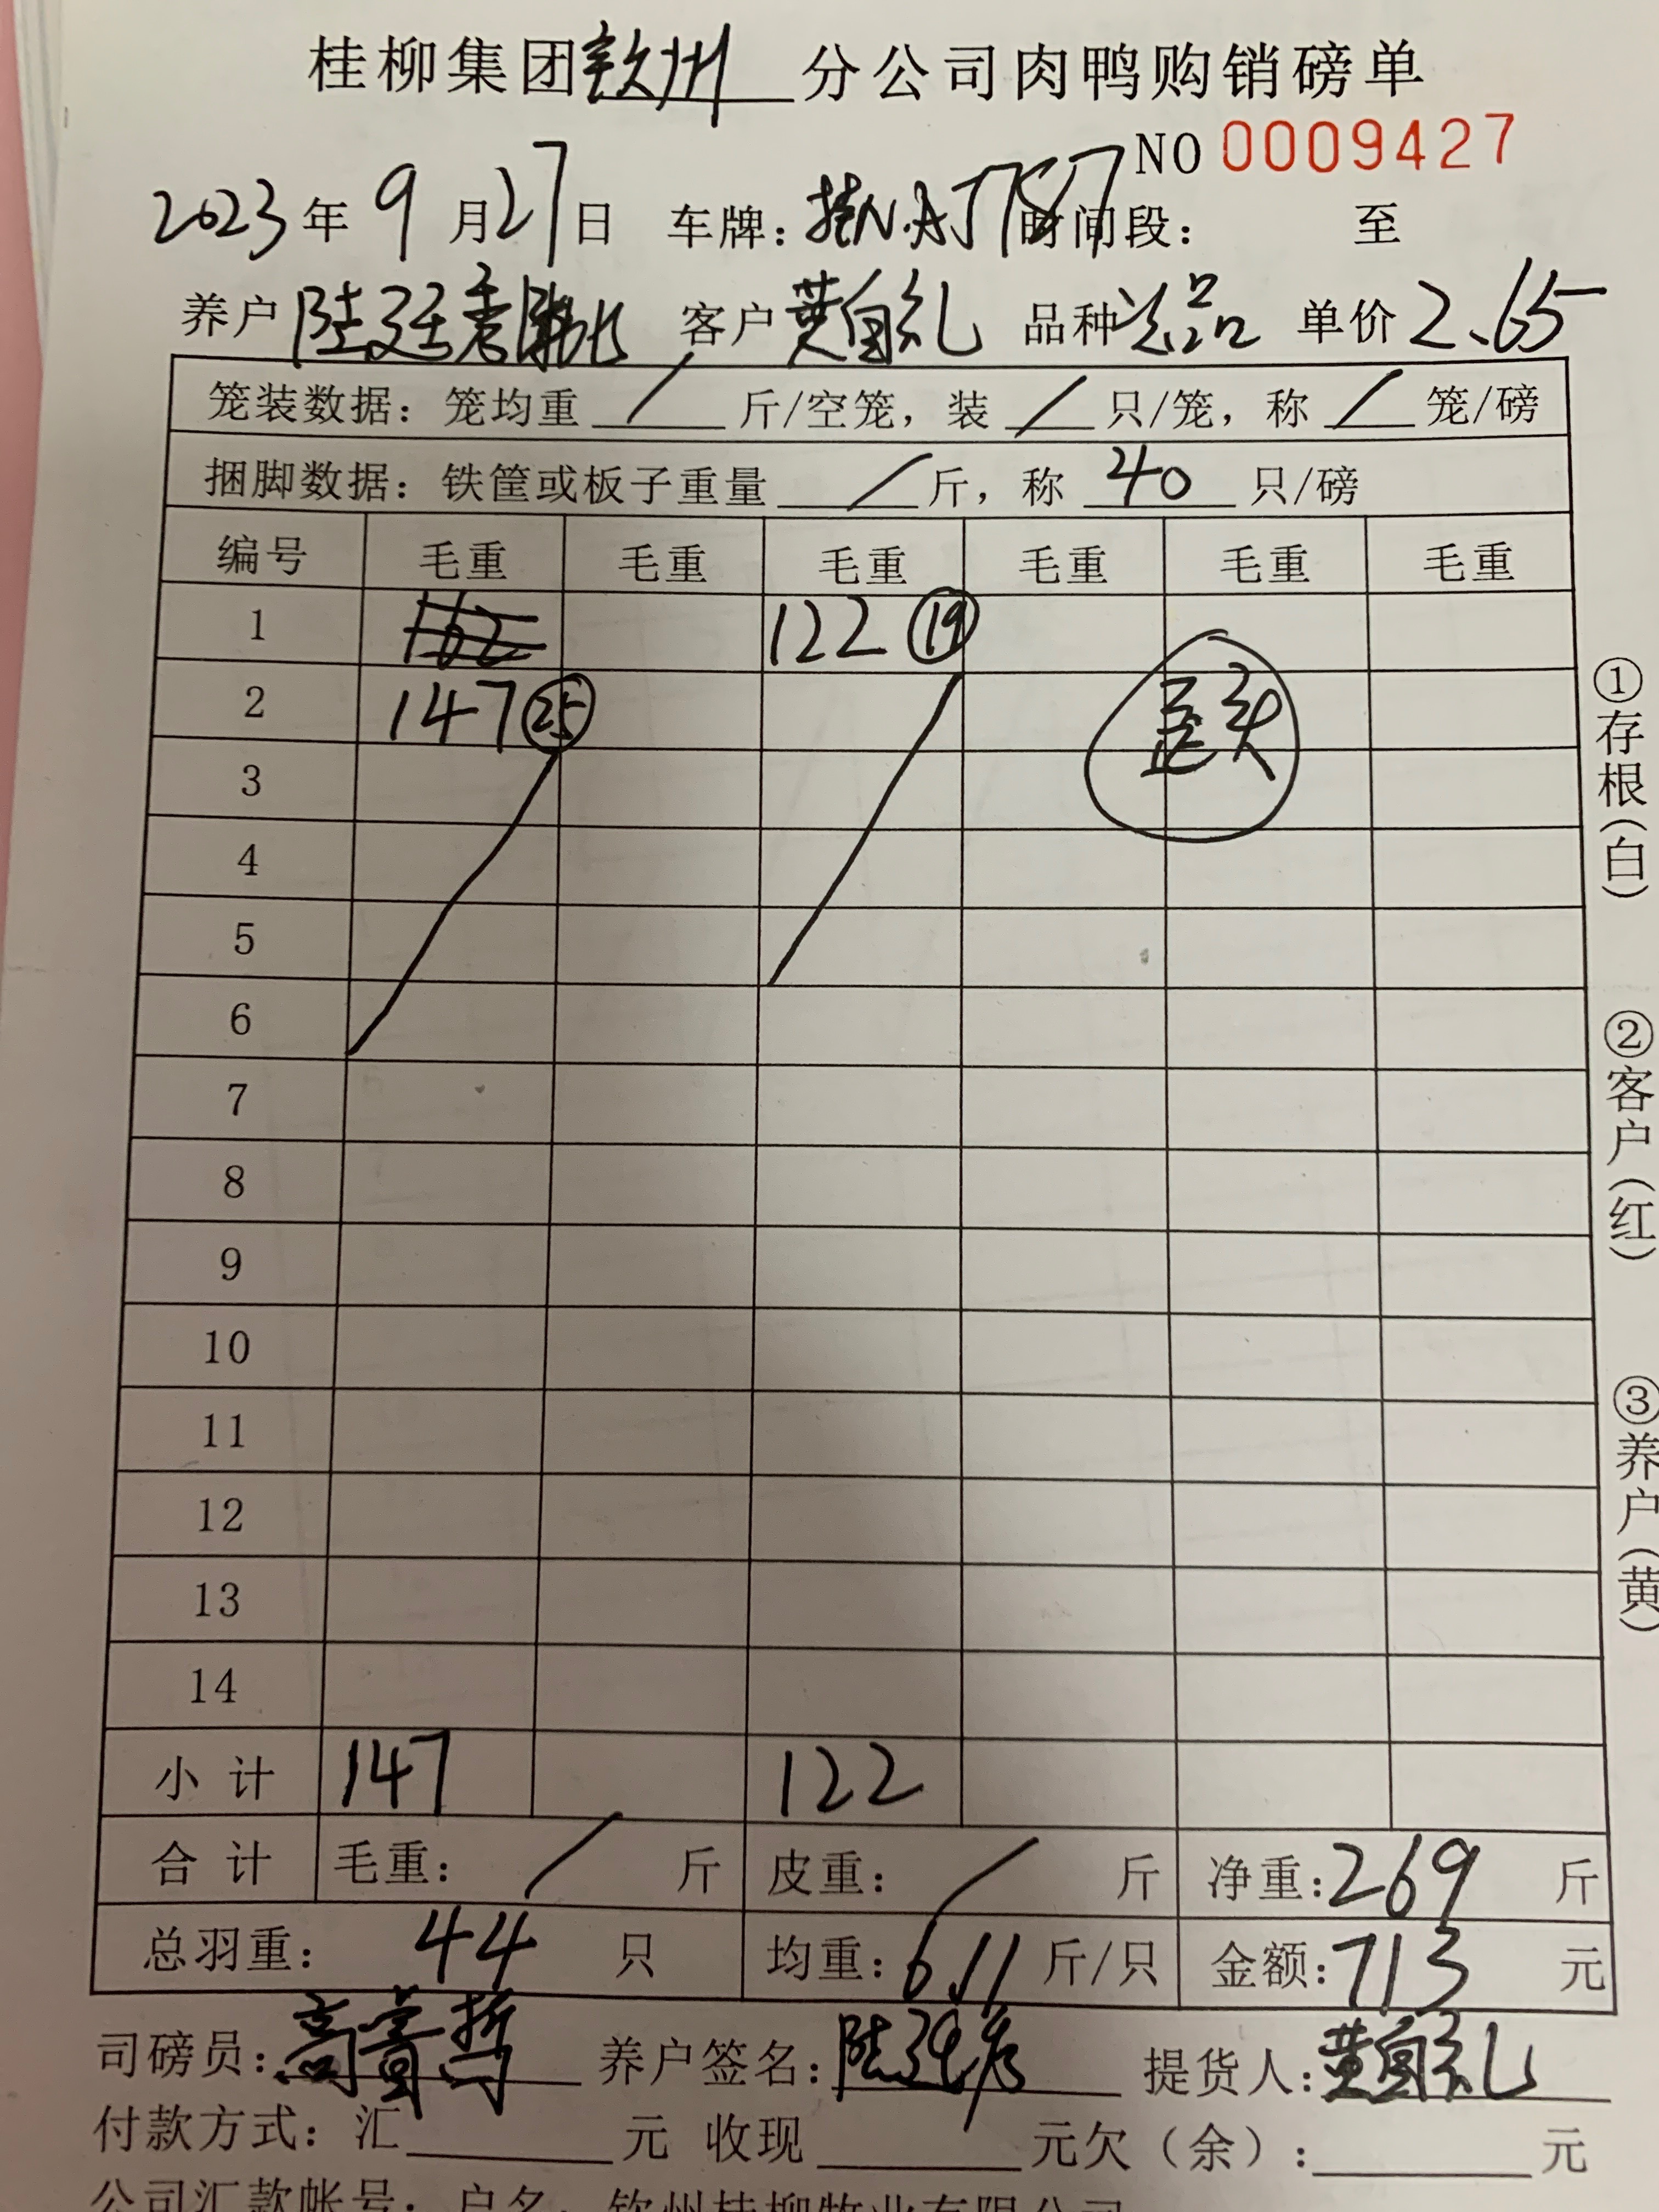 桂柳集团钦州分公司肉鸭购销磅单
NO 0009427
2023年9月27日 车牌：桂N.AJ787 时间段： 至
养户 陆廷秀 客户 黄自礼 品种 次品 单价 2.65
笼装数据：笼均重 / 斤/空笼，装 / 只/笼，称 / 笼/磅
捆脚数据：铁筐或板子重量 / 斤，称 40 只/磅
编号 毛重 毛重 毛重 毛重 毛重 毛重
1 162 122 ⑲
2 147 ㉕ 歪头
3
4
5
6
7
8
9
10
11
12
13
14
小计 147 122
合计 毛重： / 斤 皮重： / 斤 净重：269 斤
总羽重： 44 只 均重：6.11 斤/只 金额：713 元
司磅员：高 哲 养户签名：陆廷秀 提货人：黄自礼
付款方式：汇 元 收现 元欠（余）： 元
公司汇款帐号：户名：钦州桂柳牧业有限公司
①存根（白）
②客户（红）
③养户（黄）